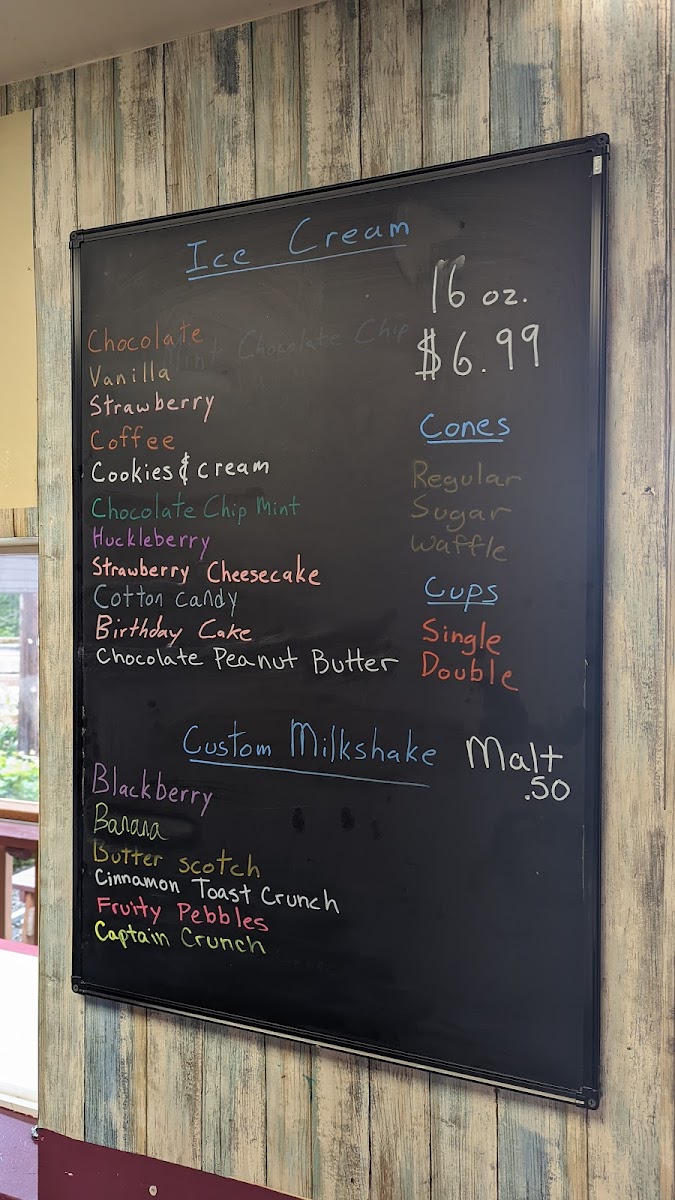 Ice Cream
16 oz.
$6.99
Chocolate
Mint Chocolate Chip
Vanilla
Strawberry
Coffee
Cookies & cream
Chocolate Chip Mint
Huckleberry
Strawberry Cheesecake
Cotton Candy
Birthday Cake
Chocolate Peanut Butter
Cones
Regular
Sugar
Waffle
Cups
Single
Double
Custom Milkshake
Malt
.50
Blackberry
Banana
Butter scotch
Cinnamon Toast Crunch
Fruity Pebbles
Captain Crunch